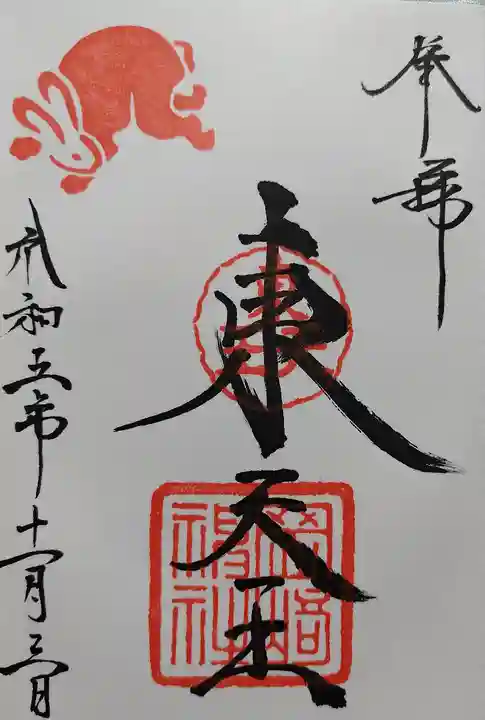 奉拝
東天王
岡﨑神社
令和五年十一月三日